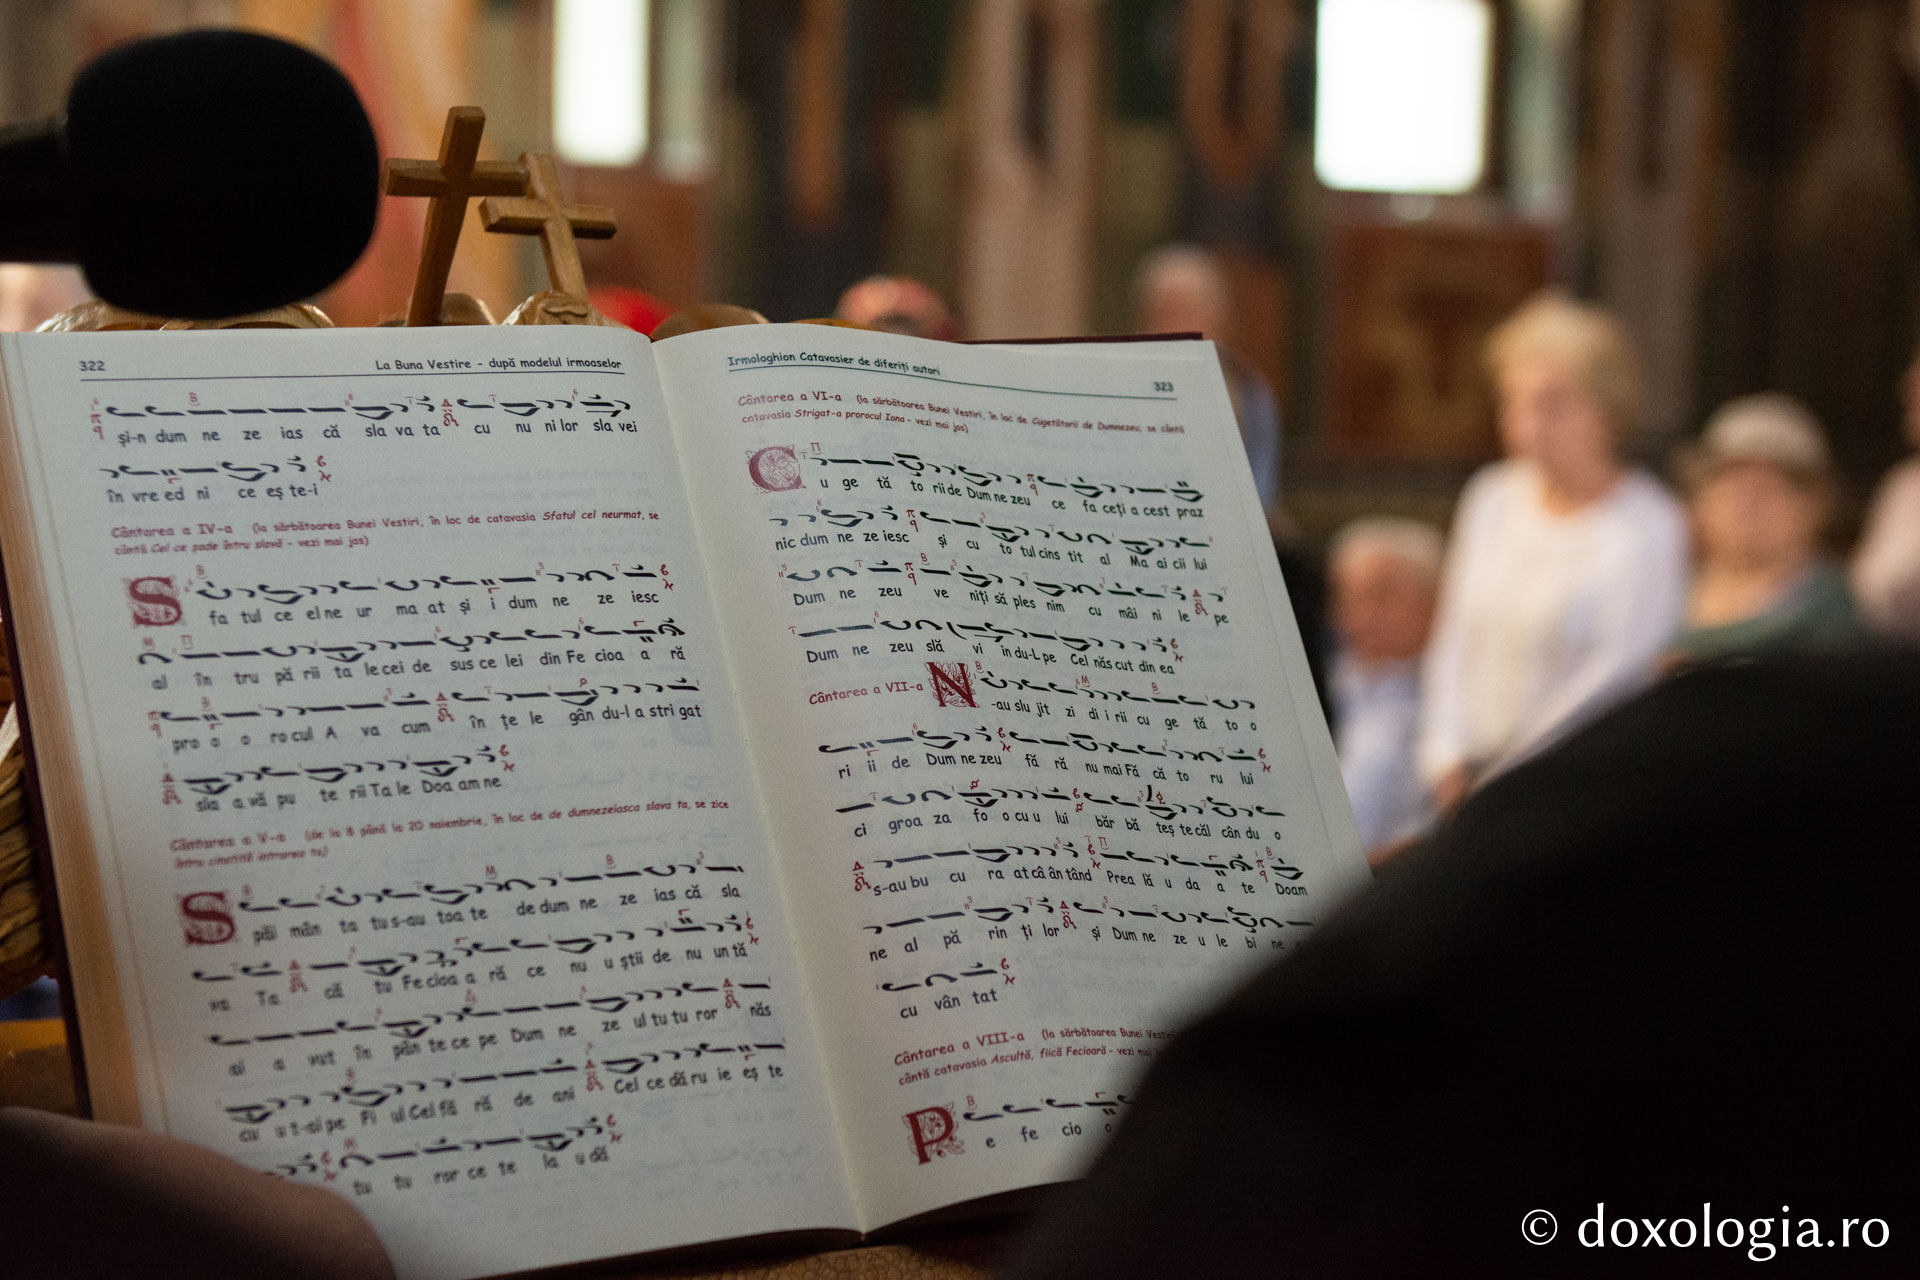 322
La Buna Vestire - după modelul irmoaselor
și-n dum ne ze ias că sla va ta cu nu ni lor sla vei
în vre ed ni ce eș te-i
Cântarea a IV-a (la sărbătoarea Bunei Vestiri, în loc de catavasia Sfatul cel neurmat, se
cântă Cel ce șade întru slavă - vezi mai jos)
S fa tul ce el ne ur ma at și i dum ne ze iesc
al în tru pă rii ta le cei de sus ce lei din Fe cioa a ră
pro o o ro cul A va cum în țe le gân du-l a stri gat
sla a vă pu te rii Ta le Doa am ne
Cântarea a V-a (de la 8 până la 20 noiembrie, în loc de de dumnezeiasca slava ta, se zice
întru cinstită intrarea ta)
S păi mân ta tu s-au toa te de dum ne ze ias că sla
va Ta că tu Fe cioa a ră ce nu u știi de nu un tă
ai a vut în pân te ce pe Dum ne ze ul tu tu ror năs
cu u t-ai pe Fi ul Cel fă ră de ani Cel ce dă ru ie eș te
tu tu ror ce te la u dă
Irmologhion Catavasier de diferiți autori
323
Cântarea a VI-a (la sărbătoarea Bunei Vestiri, în loc de Cugetătorii de Dumnezeu, se cântă
catavasia Strigat-a prorocul Iona - vezi mai jos)
C u ge tă to rii de Dum ne zeu ce fa ceți a cest praz
nic dum ne ze iesc și cu to tul cins tit al Ma ai cii lui
Dum ne zeu ve niți să ples nim cu mâi ni le pe
Dum ne zeu slă vi in du-L pe Cel năs cut din ea
Cântarea a VII-a N -au slu jit zi di i rii cu ge tă to o
ri ii de Dum ne zeu fă ră nu mai Fă că to ru lui
ci groa za fo o cu u lui băr bă teș te căl cân du o
s-au bu cu ra at câ ân tând Prea lă u da a te Doam
ne al pă rin ți lor și Dum ne ze u le bi ne
cu vân tat
Cântarea a VIII-a (la sărbătoarea Bunei Vestiri
cântă catavasia Ascultă, fiică Fecioară - vezi mai
P e fe cio
© doxologia.ro